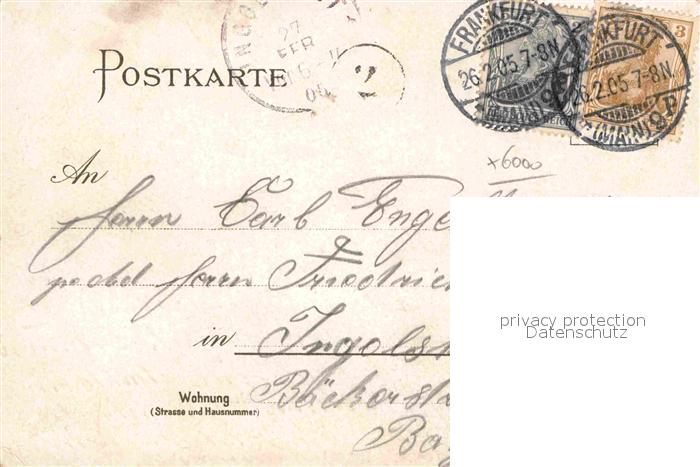 POSTKARTE
27
FEB
FRANKFURT
26.2.05.7-8N
(MAIN) 9
FRANKFURT
26.2.05.7-8N
(MAIN) 9
3
x6000
An
Herrn Carl Enge
Herrn Friedrich
in Ingols
Wohnung
(Strasse und Hausnummer)
Bäckerst
Ba
privacy protection
Datenschutz